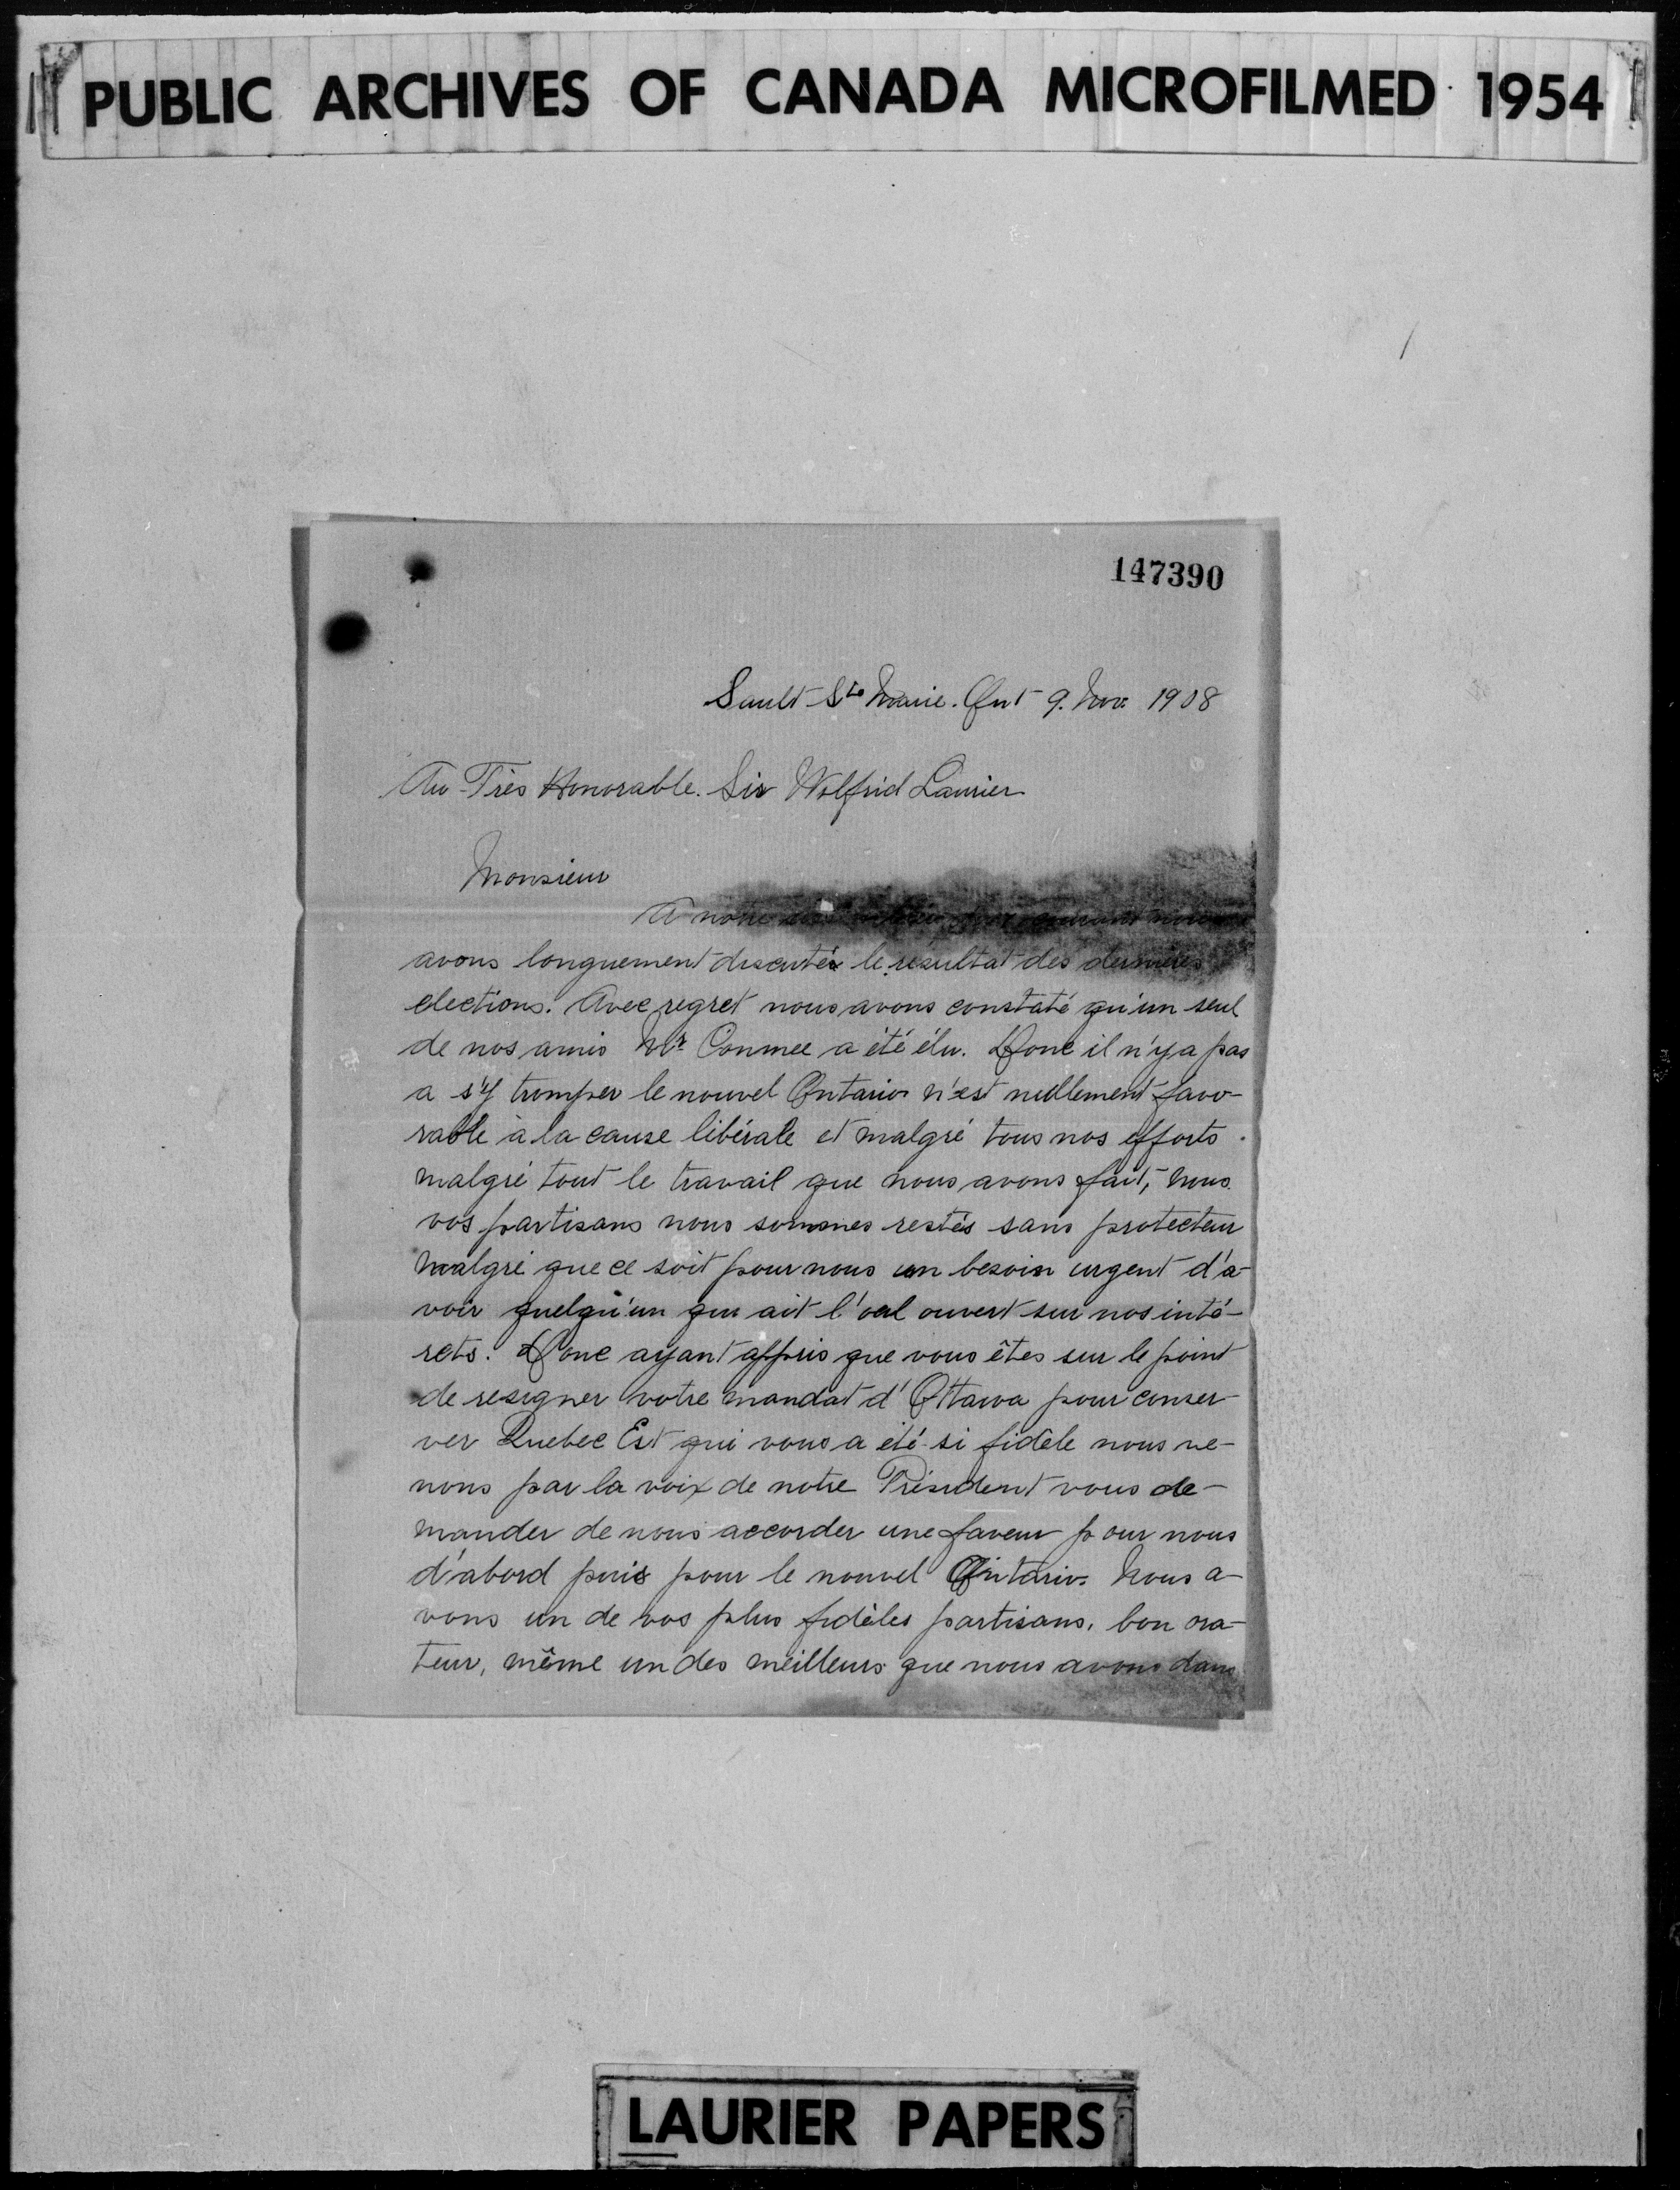 PUBLIC ARCHIVES OF CANADA MICROFILMED 1954
147390
Sault Ste Marie. Ont 9. Nov. 1908
Au Très Honorable. Sir Wilfrid Laurier
Monsieur
A notre courant nous
avons longuement discutés le résultat des dernières
elections. Avec regret nous avons constaté qu'un seul
de nos amis Mr Conmee a été élu. Donc il n'y a pas
a s'y tromper le nouvel Ontario n'est nullement favo-
rable à la cause libérale et malgré tous nos efforts
malgré tout le travail que nous avons fait, nous
vos partisans nous sommes restés sans protecteur
malgré que ce soit pour nous un besoin urgent d'a-
voir quelqu'un qui ait l'oeil ouvert sur nos inté-
rets. Donc ayant appris que vous êtes sur le point
de resigner votre mandat d'Ottawa pour conser-
ver Quebec Est qui vous a été si fidèle nous ve-
nons par la voix de notre Président vous de-
mander de nous accorder une faveur pour nous
d'abord puis pour le nouvel Ontario. Nous a-
vons un de vos plus fidèles partisans, bon ora-
teur, même un des meilleurs que nous avons dans
LAURIER PAPERS